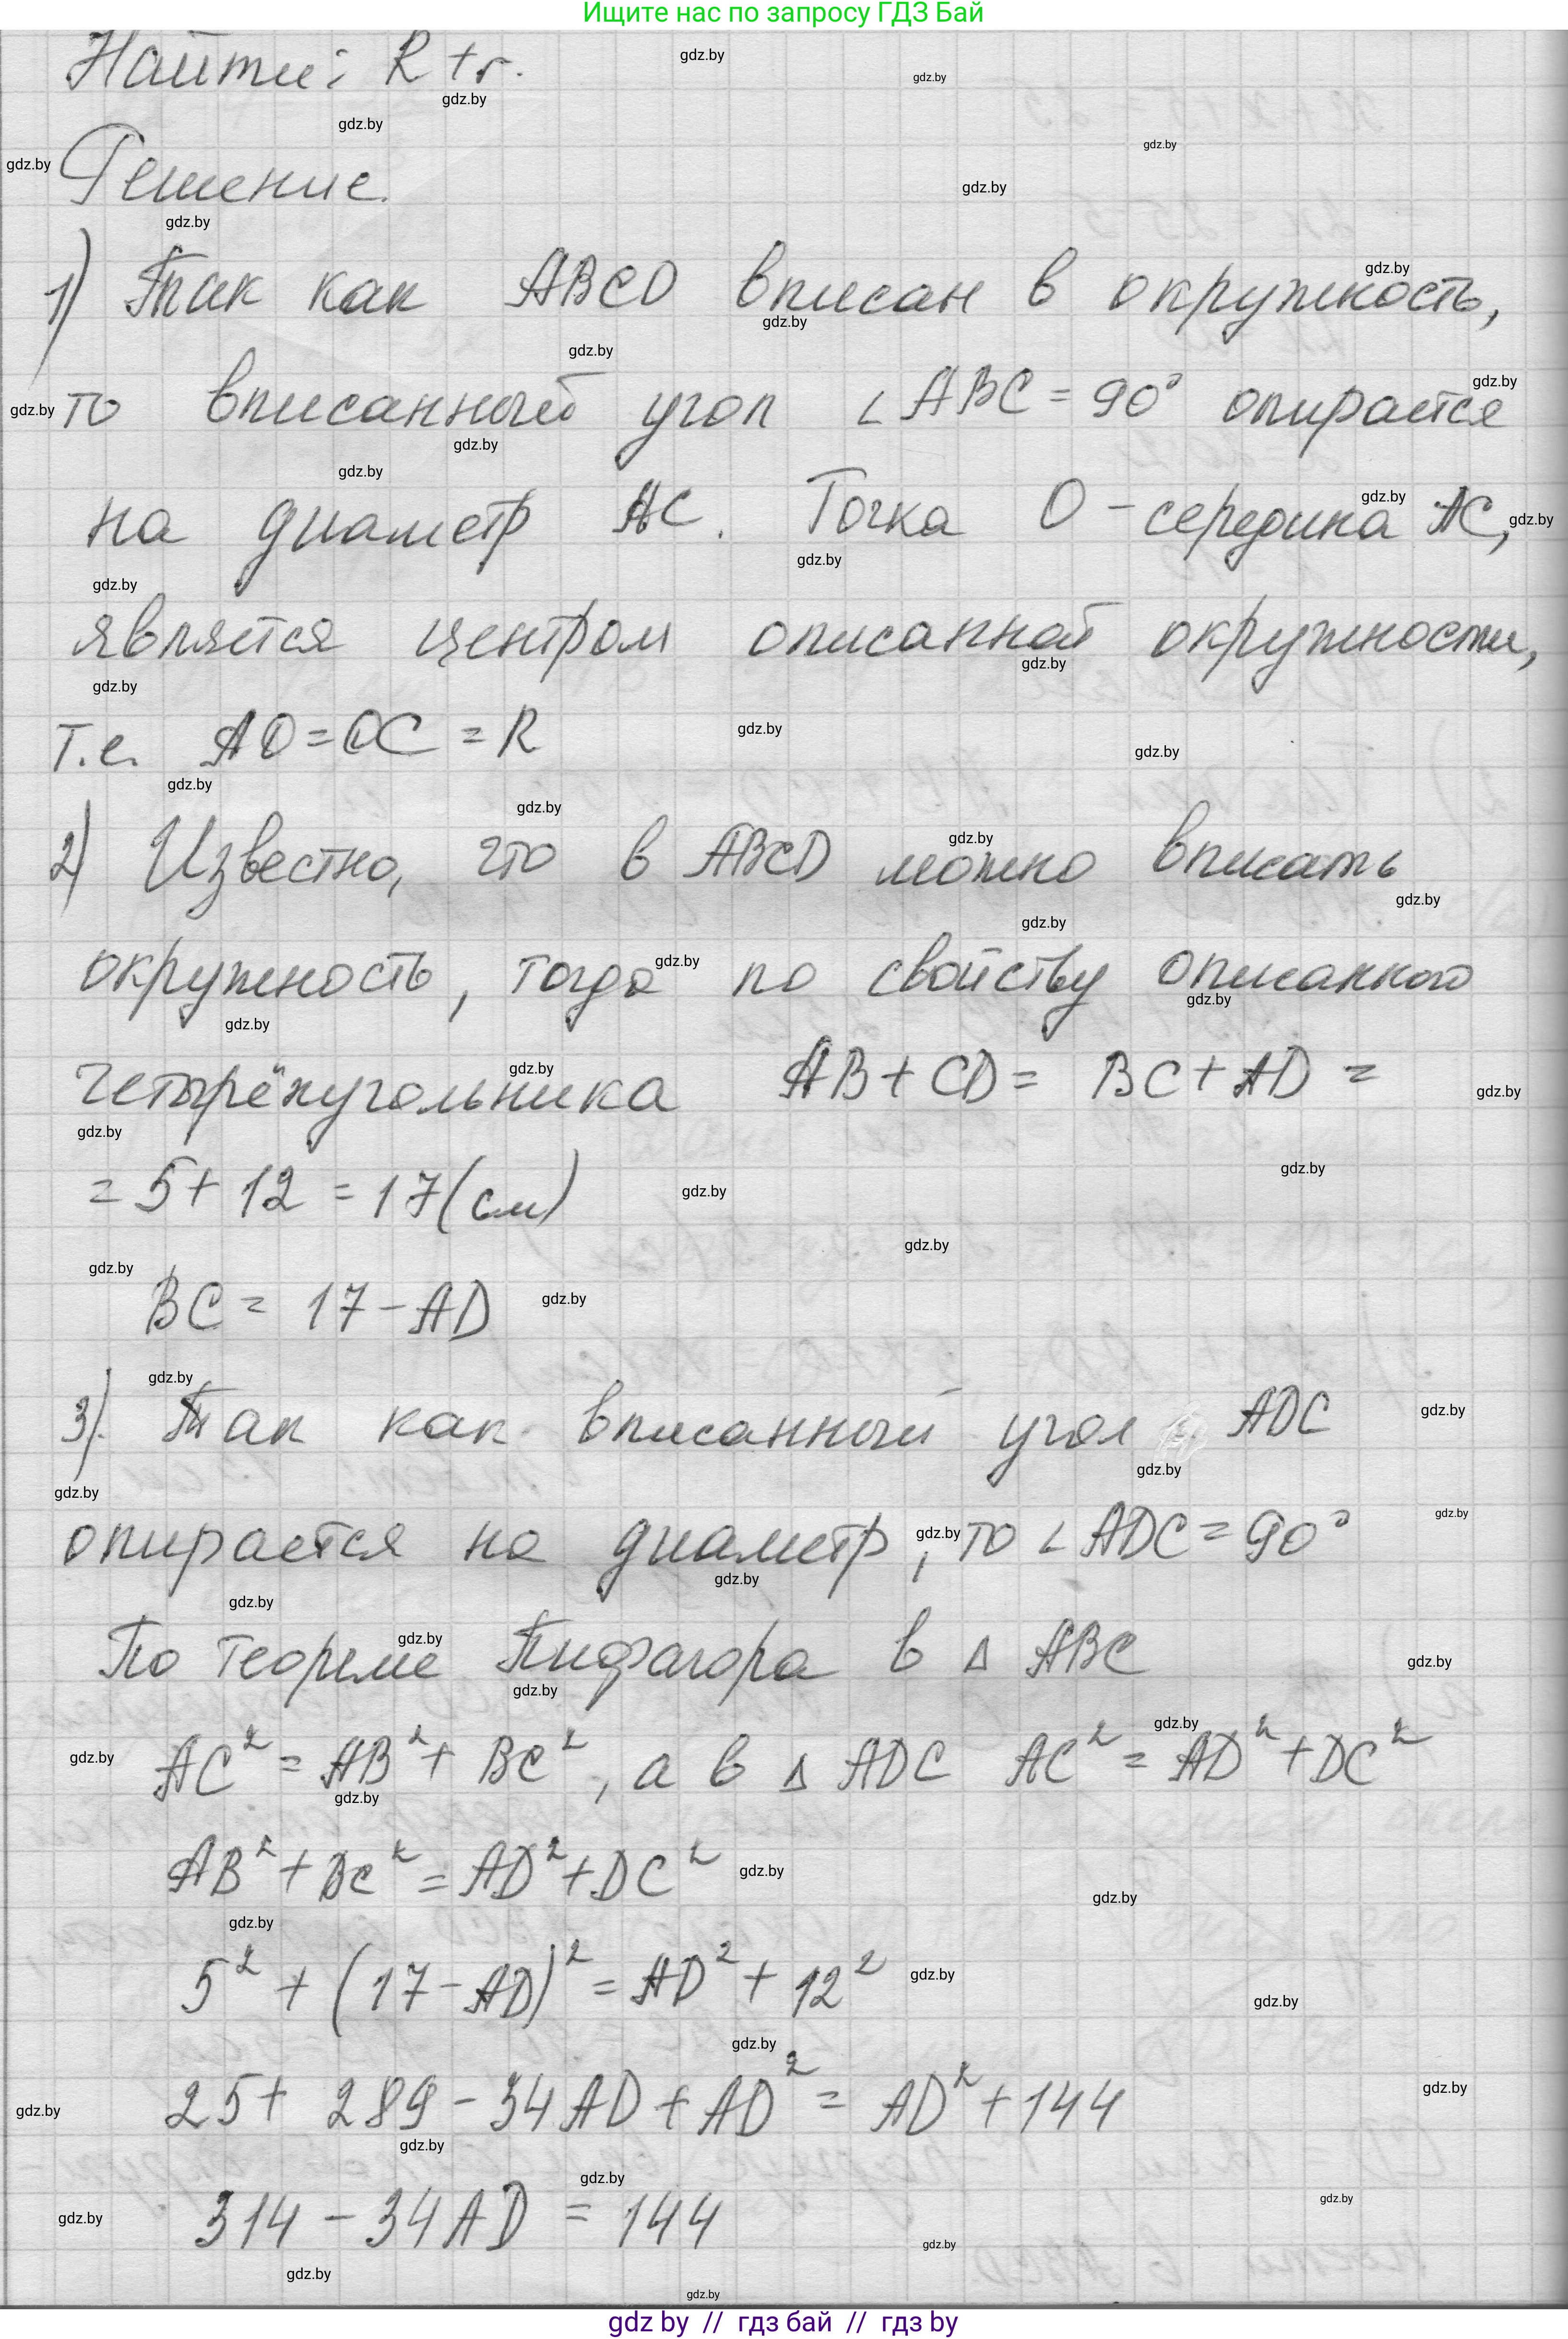 Ищите нас по запросу ГДЗ Бай
Найти: R + r.
Решение.
1) Так как ABCD вписан в окружность,
то вписанный угол ∠ABC = 90° опирается
на диаметр AC. Точка O - середина AC,
является центром описанной окружности,
т.е. AO = OC = R
2) Известно, что в ABCD можно вписать
окружность, тогда по свойству описанного
четырёхугольника AB + CD = BC + AD =
= 5 + 12 = 17 (см)
BC = 17 - AD
3). Так как вписанный угол ADC
опирается на диаметр, то ∠ADC = 90°
По теореме Пифагора в Δ ABC
AC² = AB² + BC², а в Δ ADC AC² = AD² + DC²
AB² + BC² = AD² + DC²
5² + (17 - AD)² = AD² + 12²
25 + 289 - 34AD + AD² = AD² + 144
314 - 34AD = 144
gdz by // гдз бай // гдз by